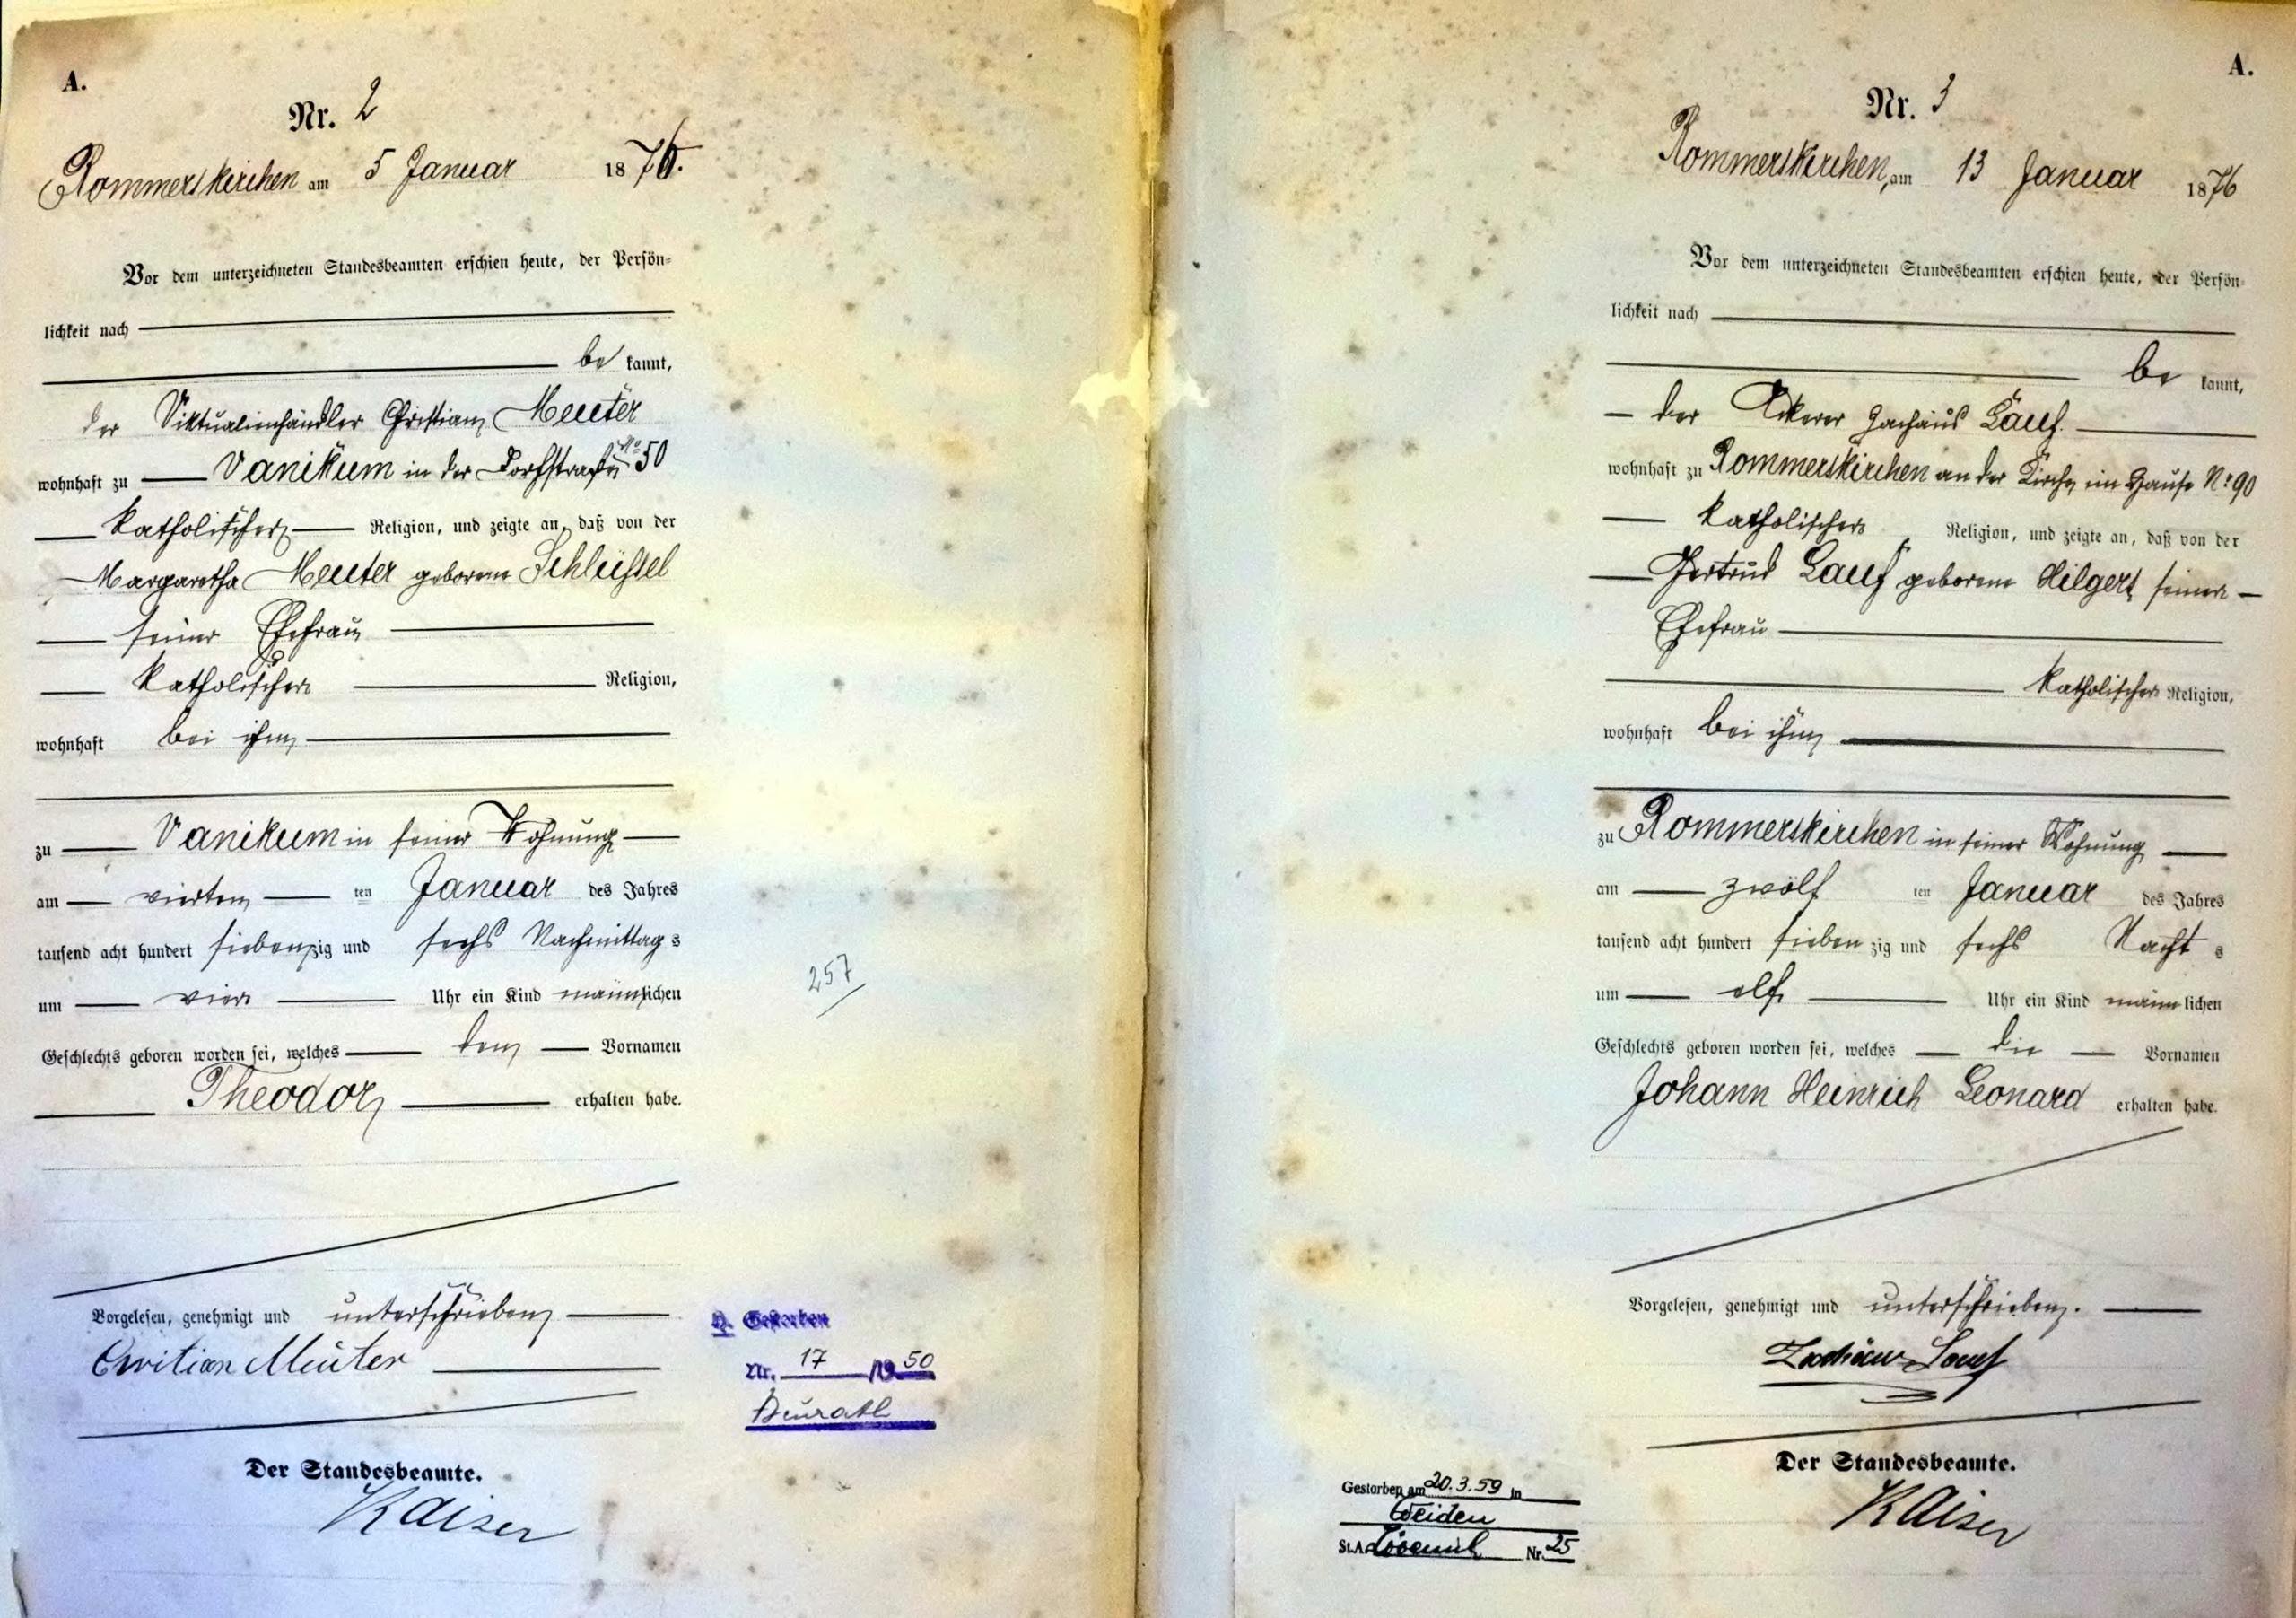 A.
Nr. 2
Rommerskirchen am 5 Januar 1876.
Vor dem unterzeichneten Standesbeamten erschien heute, der Persön=
lichkeit nach
be kannt,
der Viktualienhändler Christian Meuter
wohnhaft zu Vanikum in der Dorfstraße No 50
katholischer Religion, und zeigte an, daß von der
Margaretha Meuter geborene Schlüssel
seiner Ehefrau
katholischer Religion,
wohnhaft bei ihm
zu Vanikum in seiner Wohnung
am vierten ten Januar des Jahres
tausend acht hundert siebenzig und sechs Nachmittags
um vier Uhr ein Kind männlichen
Geschlechts geboren worden sei, welches den Vornamen
Theodor erhalten habe.
257
Vorgelesen, genehmigt und unterschrieben
Meuter
Gestorben
Nr. 17 /1950
Der Standesbeamte.
Kaiser
A.
Nr. 3
Rommerskirchen, am 13 Januar 1876
Vor dem unterzeichneten Standesbeamten erschien heute, der Persön=
lichkeit nach
be kannt,
der Ackerer Zachäus Lauf.
wohnhaft zu Rommerskirchen an der Kirche im Hause No 90
katholischer Religion, und zeigte an, daß von der
Gertrud Lauf geborene Hilgers seiner
Ehefrau
katholischer Religion,
wohnhaft bei ihm
zu Rommerskirchen in seiner Wohnung
am zwölf ten Januar des Jahres
tausend acht hundert siebenzig und sechs Nachts
um elf Uhr ein Kind männlichen
Geschlechts geboren worden sei, welches die Vornamen
Johann Heinrich Leonard erhalten habe.
Vorgelesen, genehmigt und unterschrieben.
Zachäus Lauf
Der Standesbeamte.
Kaiser
Gestorben am 20.3.59 in
Weiden
St.A. Lövenich Nr. 25